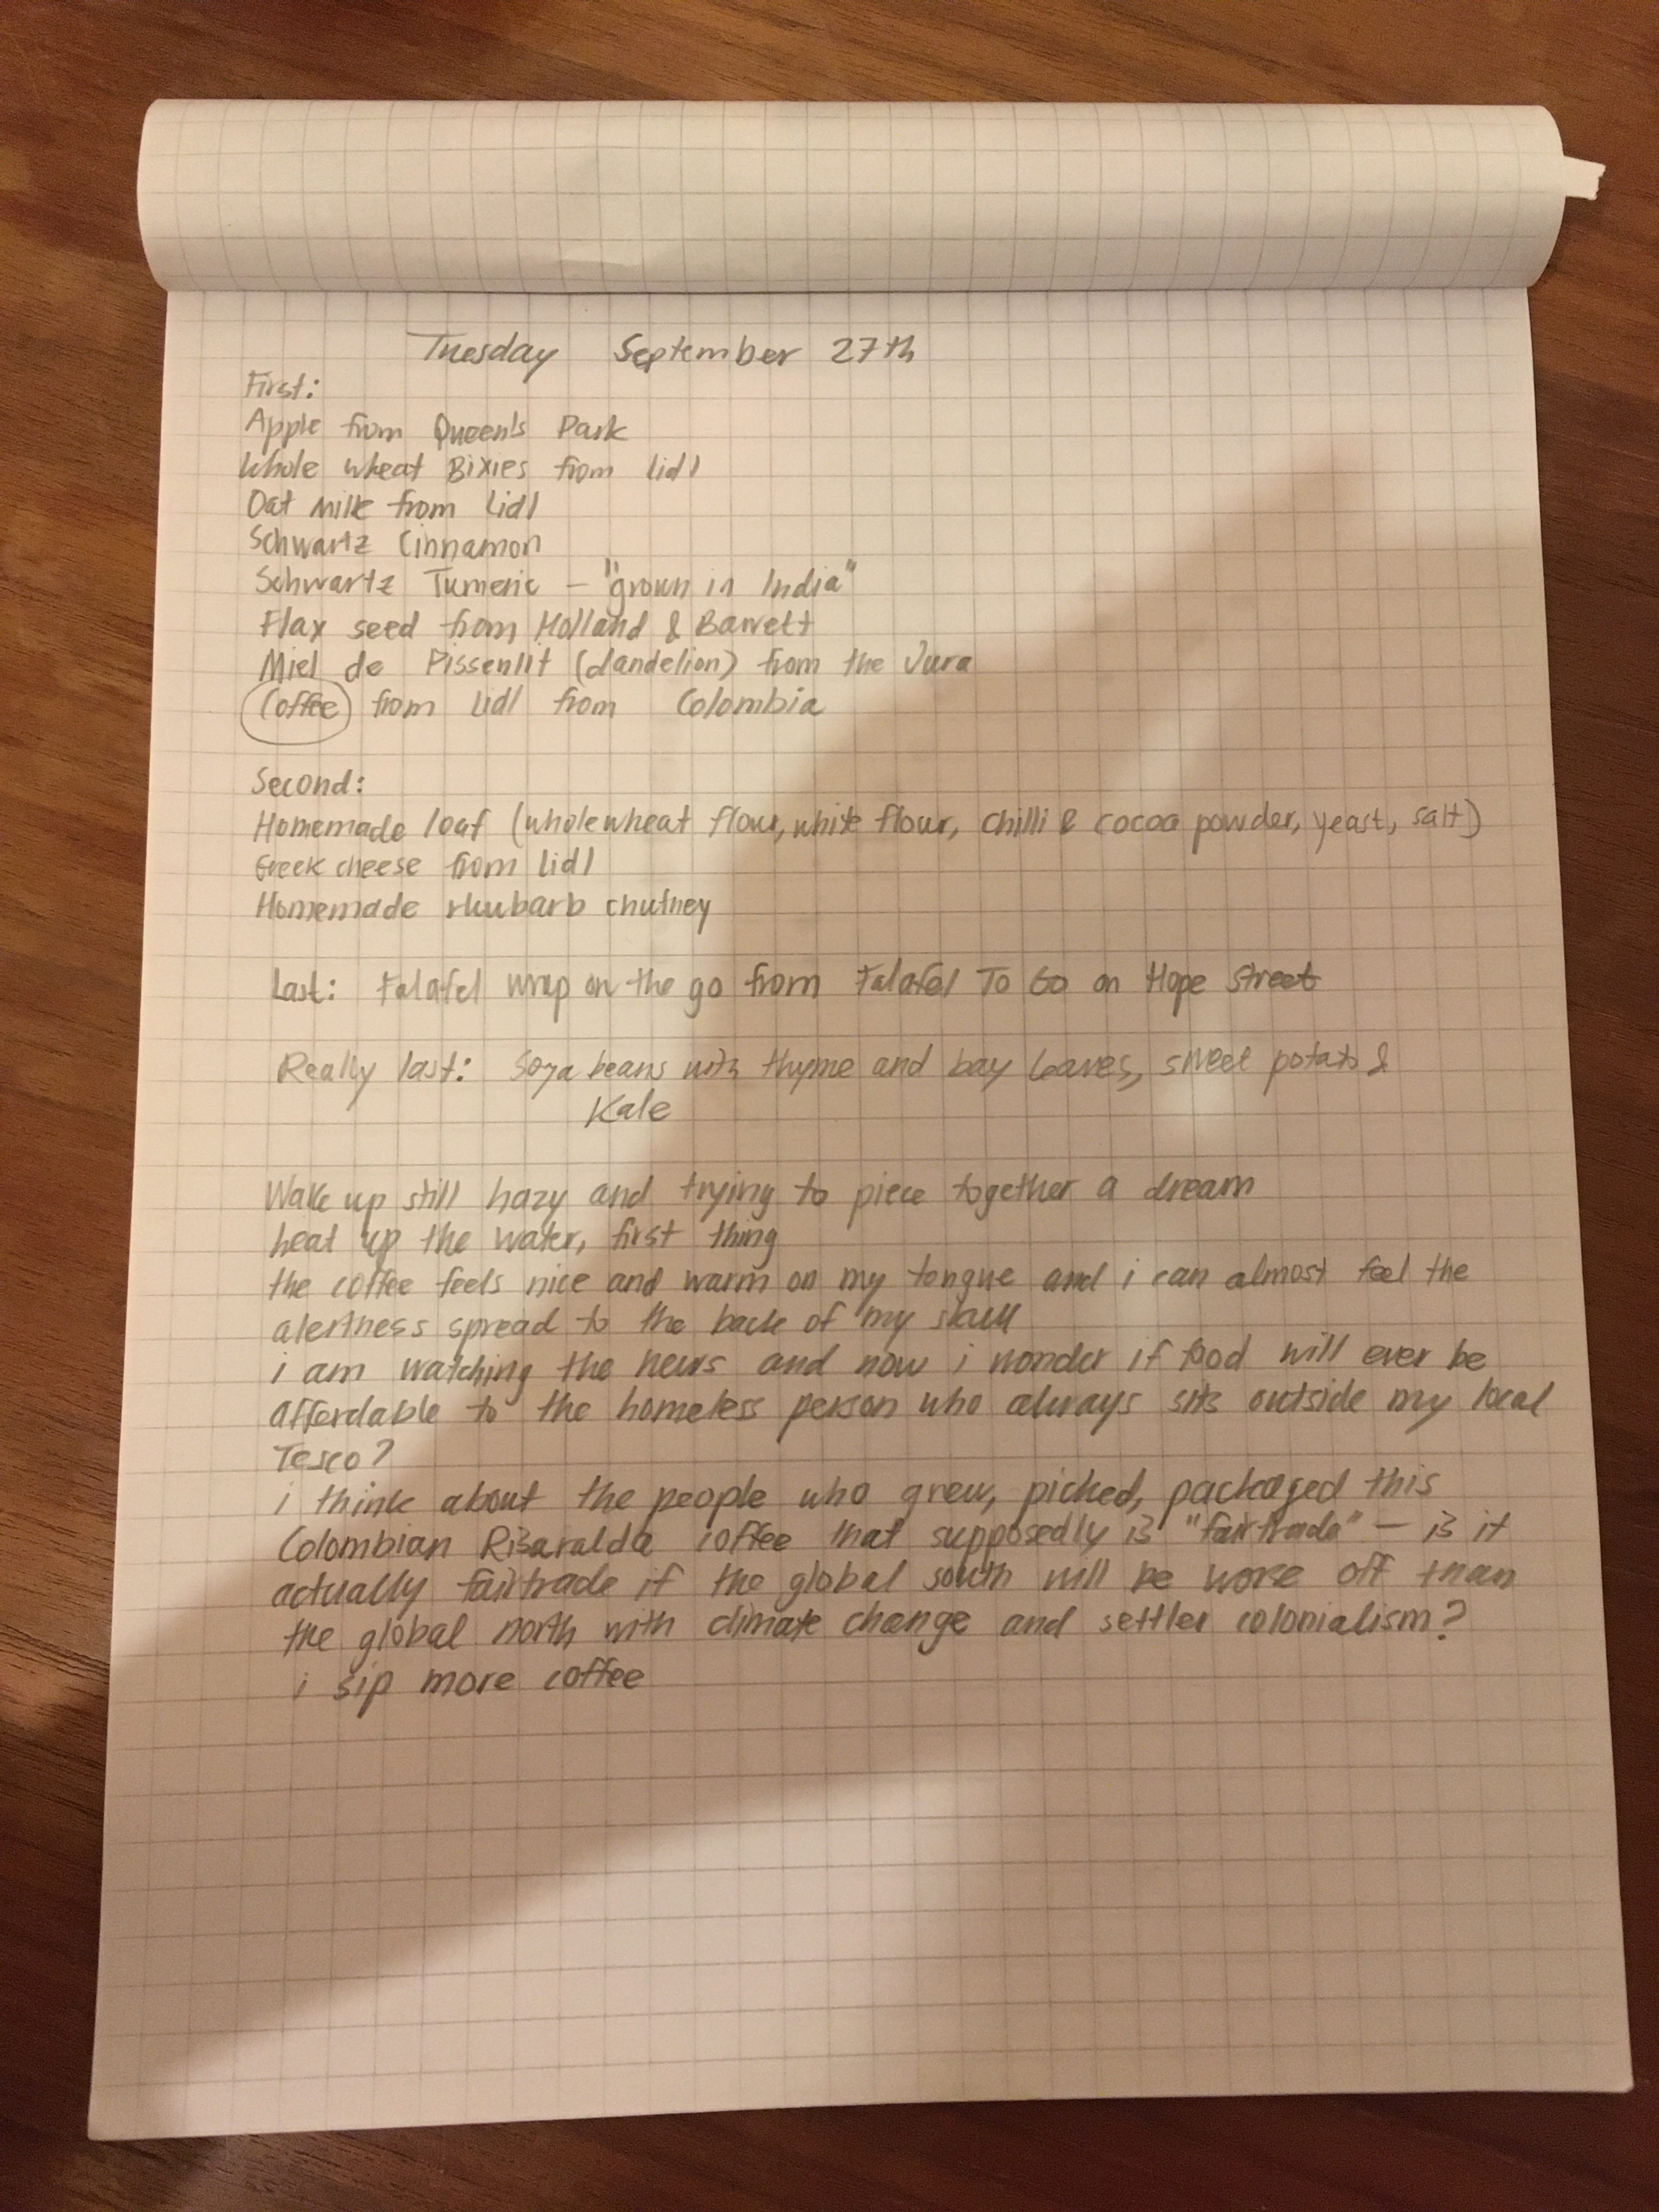 Tuesday September 27th
First:
Apple from Queen's Park
Whole wheat Bixies from Lidl
Oat milk from Lidl
Schwartz Cinnamon
Schwartz Tumeric – "grown in India"
Flax seed from Holland & Barrett
Miel de Pissenlit (dandelion) from the Jura
Coffee from Lidl from Colombia
Second:
Homemade loaf (wholewheat flour, white flour, chilli & cocoa powder, yeast, salt)
Greek cheese from Lidl
Homemade rhubarb chutney
Last: Falafel wrap on the go from Falafel To Go on Hope Street
Really last: Soya beans with thyme and bay leaves, sweet potato &
Kale
Wake up still hazy and trying to piece together a dream
heat up the water, first thing
the coffee feels nice and warm on my tongue and i can almost feel the
alertness spread to the back of my skull
i am watching the news and now i wonder if food will ever be
affordable to the homeless person who always sits outside my local
Tesco?
i think about the people who grew, picked, packaged this
Colombian Risaralda coffee that supposedly is "fairtrade" – is it
actually fairtrade if the global south will be worse off than
the global north with climate change and settler colonialism?
i sip more coffee